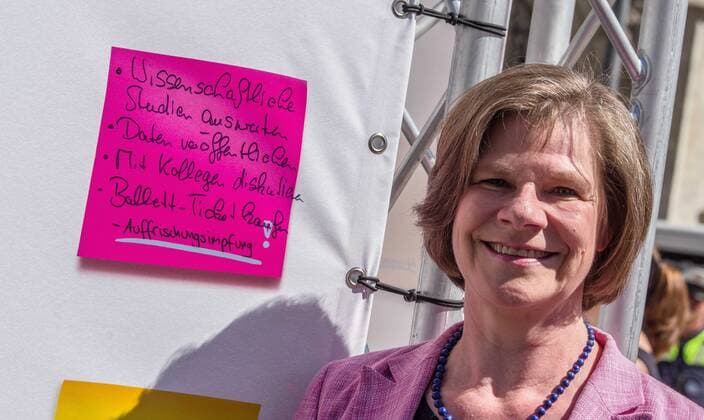 • Wissenschaftliche
Studien auswerten
• Daten veröffentlichen
• Mit Kollegen diskutieren
• Ballett-Ticket kaufen
- Auffrischungsimpfung!